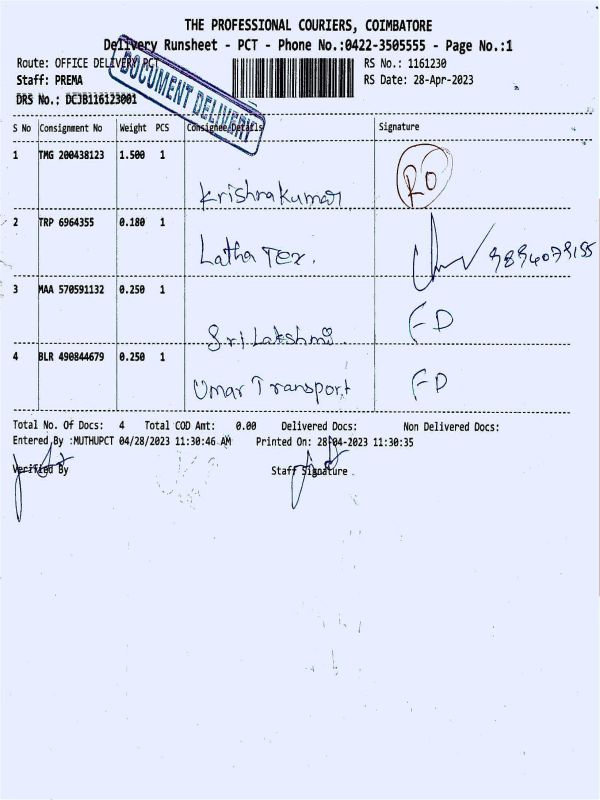 THE PROFESSIONAL COURIERS, COIMBATORE
Delivery Runsheet - PCT - Phone No.:0422-3505555 - Page No.:1
Route: OFFICE DELIVERY PCT
RS No.: 1161230
Staff: PREMA
RS Date: 28-Apr-2023
DRS No.: DCJB116123001
DOCUMENT DELIVERY
S No Consignment No Weight PCS Consignee Details Signature
1 TMG 200438123 1.500 1
Krishnakumar RO
2 TRP 6964355 0.180 1
Latha Tex.
3 MAA 570591132 0.250 1
Sri Lakshmi. FD
4 BLR 490844679 0.250 1
Umar Transport FD
Total No. Of Docs: 4 Total COD Amt: 0.00 Delivered Docs: Non Delivered Docs:
Entered By :MUTHUPCT 04/28/2023 11:30:46 AM Printed On: 28-04-2023 11:30:35
Verified By Staff Signature